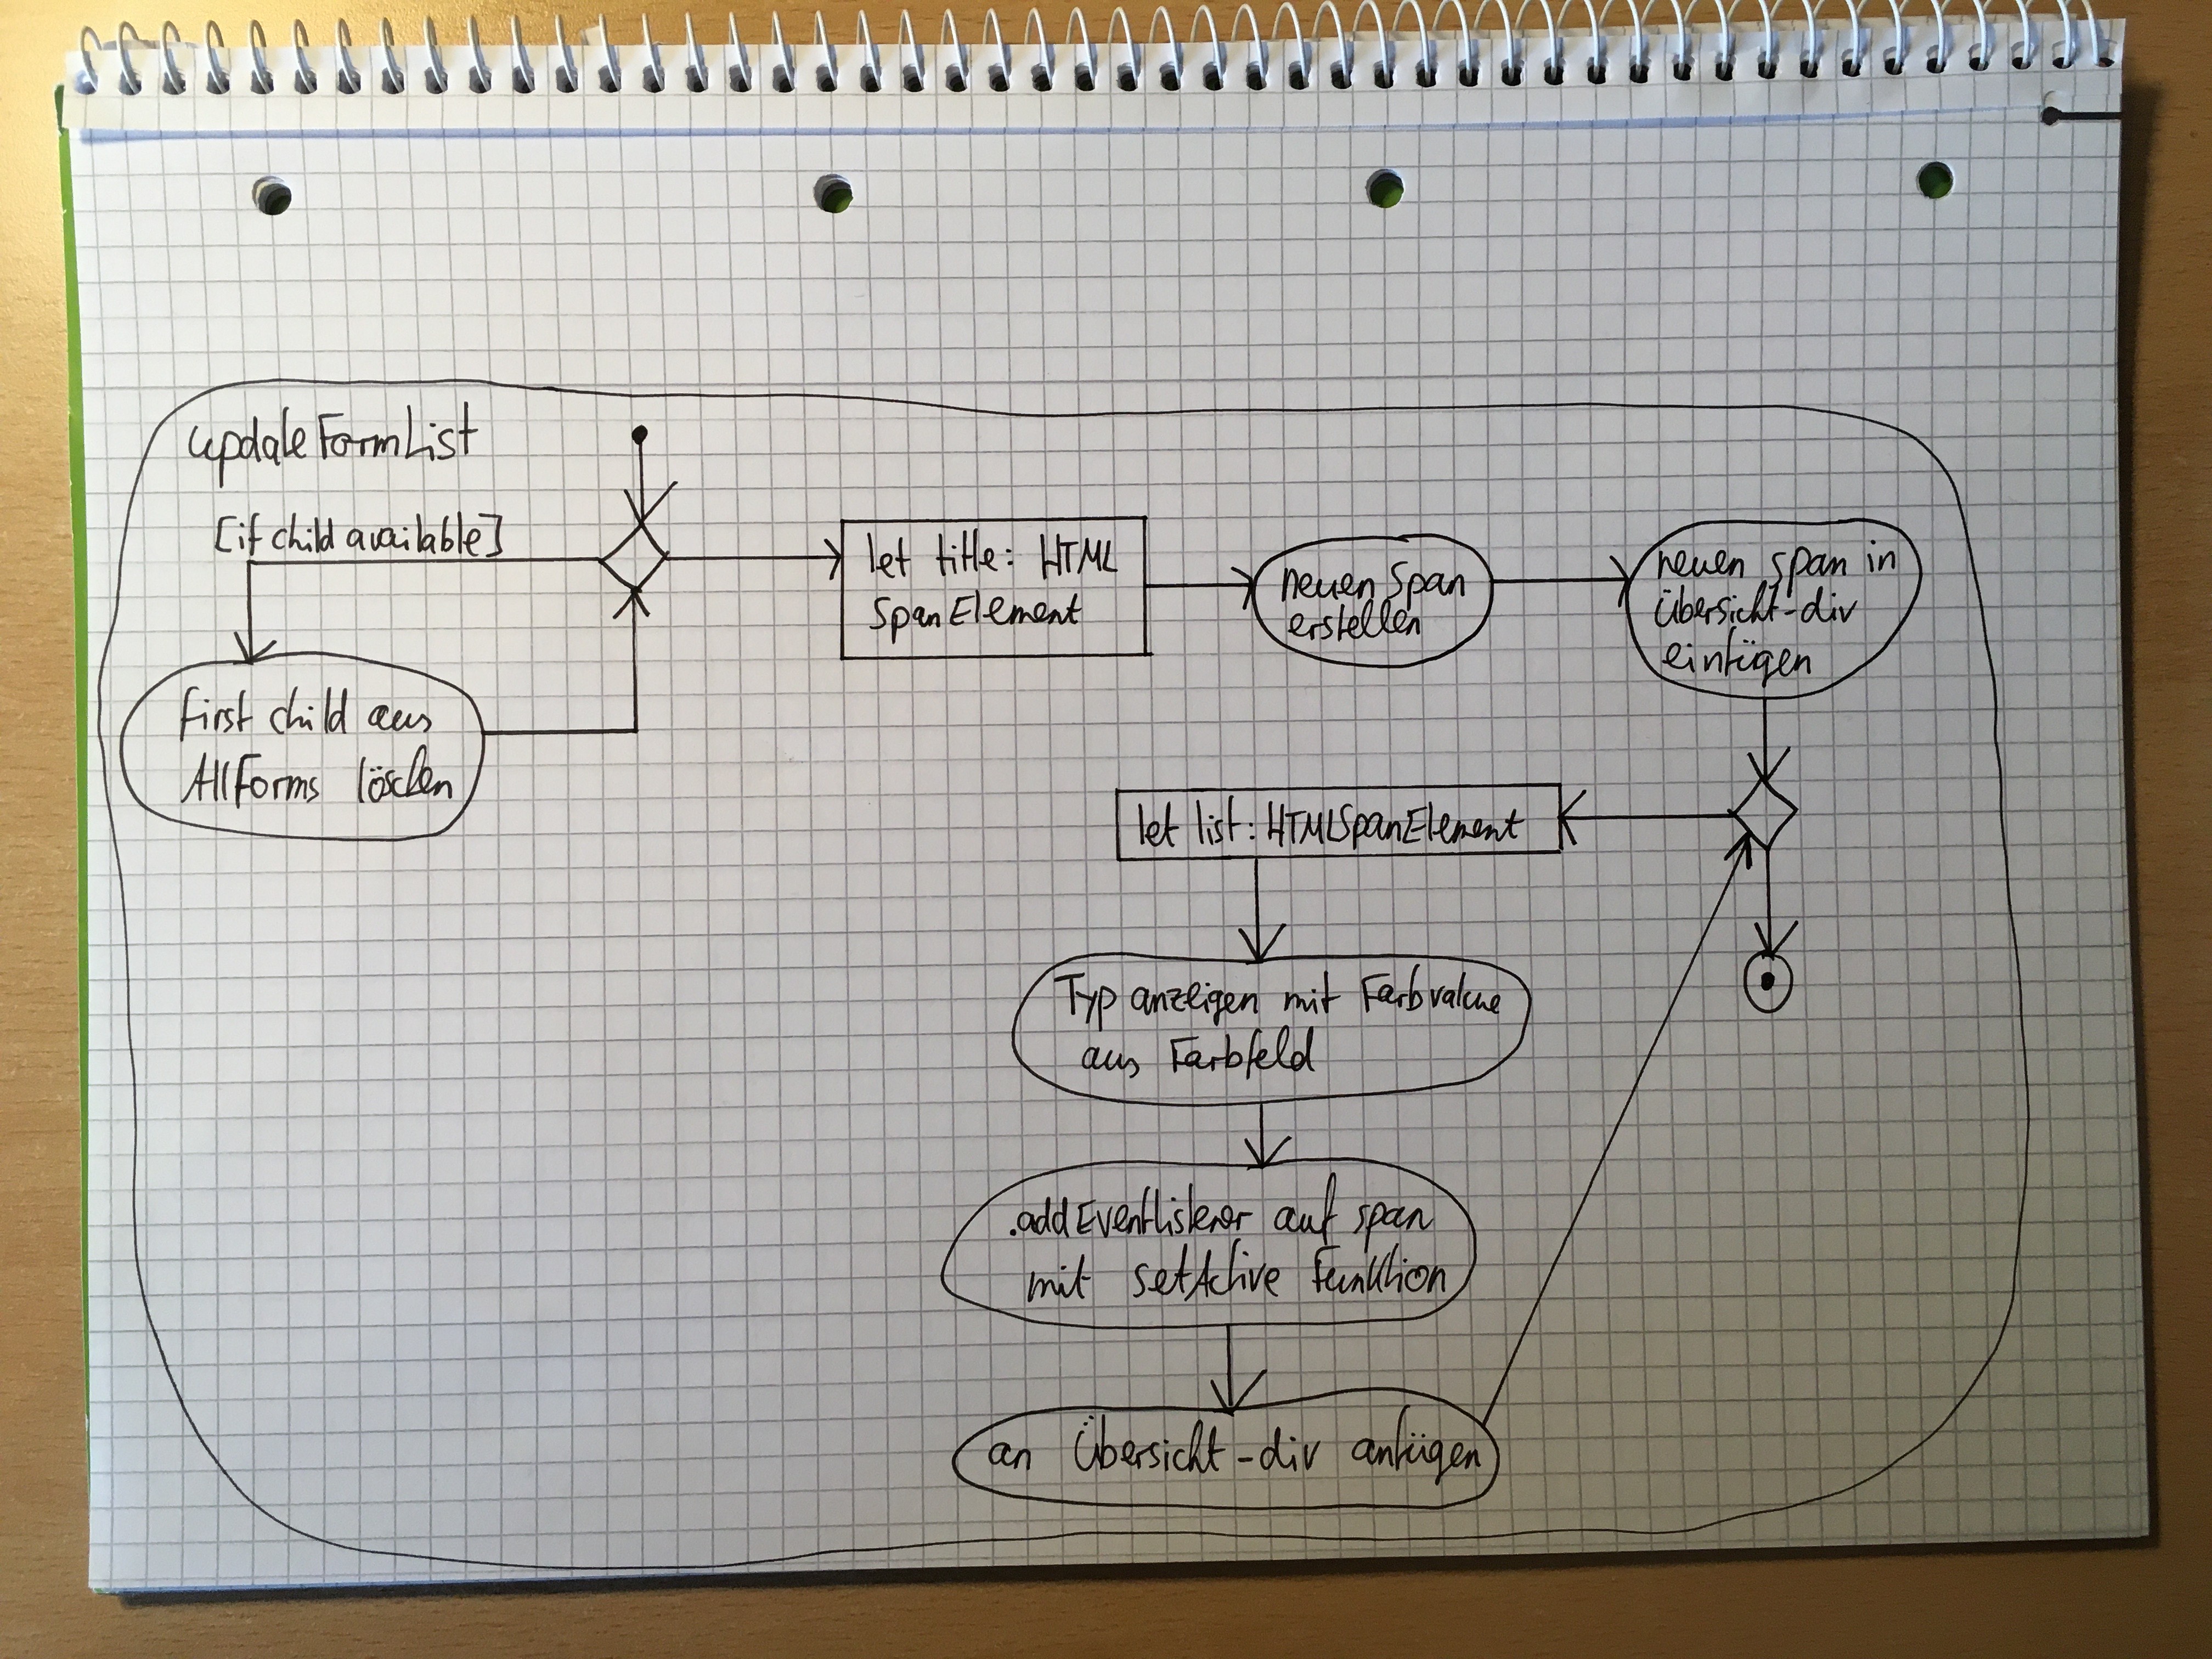 updateFormList
[if child available]
first child aus
AllForms löschen
let title: HTML
SpanElement
neuen Span
erstellen
neuen span in
Übersicht-div
einfügen
let list: HTMLSpanElement
Typ anzeigen mit Farbvalue
aus Farbfeld
.addEventListener auf span
mit setActive Funktion
an Übersicht-div anfügen